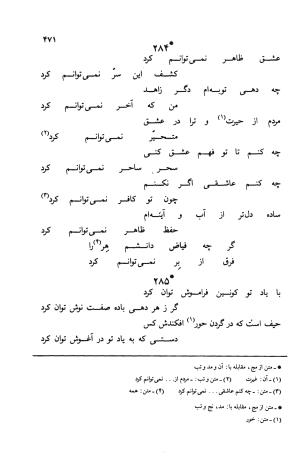 ۴۷۱
*۲۸۴
عشق ظاهر نمی‌توانم کرد
کشف این سرّ نمی‌توانم کرد
چه دهی توبه‌ام دگر زاهد
من که آخر نمی‌توانم کرد
مردم از حیرت(۱) و ترا در عشق
متحیّر نمی‌توانم کرد(۲)
چه کنم تا تو فهم عشق کنی
سحر ساحر نمی‌توانم کرد
چه کنم عاشقی اگر نکنم
چون تو کافر نمی‌توانم کرد(۳)
ساده دل‌تر از آب و آینه‌ام
حفظ ظاهر نمی‌توانم کرد
گر چه فیاض دانشم هِر(۴) را
فرق از بِر نمی‌توانم کرد
*۲۸۵
با یاد تو کونین فراموش توان کرد
گر ز هر دهی باده صفت نوش توان کرد
حیف است که در گردن حور(۱) افکندش کس
دستی که به یاد تو در آغوش توان کرد
* - متن از مج، مقابله با: آن و مد و تب
(۱) - آن: غیرت (۲) - متن و تب: - مردم از... نمی‌توانم کرد
(۳) - متن: - چه کنم عاشقی... نمی‌توانم کرد (۴) - متن: همه
* - متن از مج، مقابله با: مد، نج و تب
(۱) - متن: خور